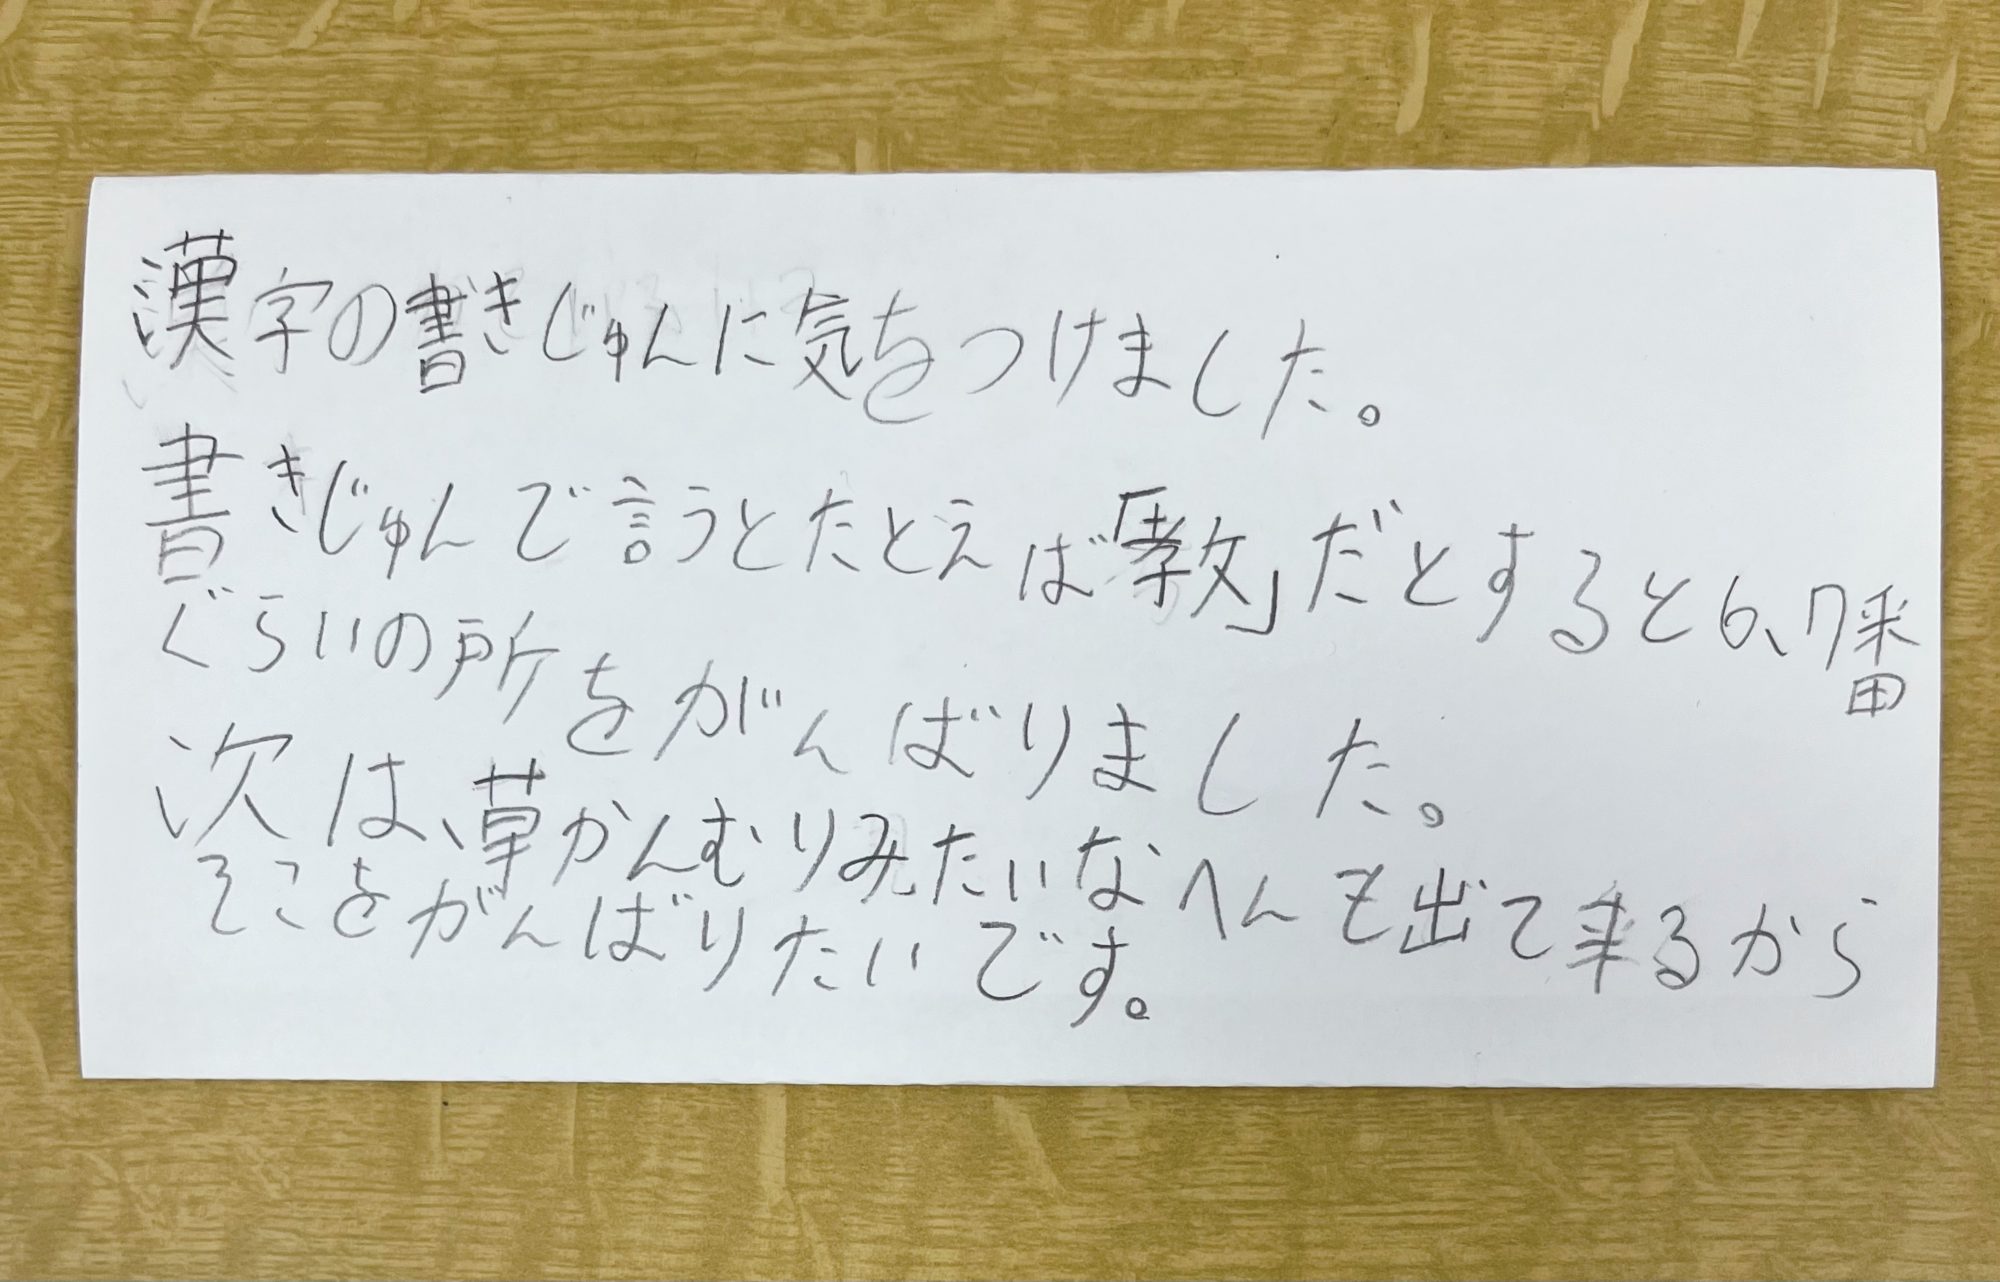 漢字の書きじゅんに気をつけました。
書きじゅんで言うとたとえば「教」だとすると6、7番
ぐらいの所をがんばりました。
次は、草かんむりみたいなへんも出て来るから
そこをがんばりたいです。